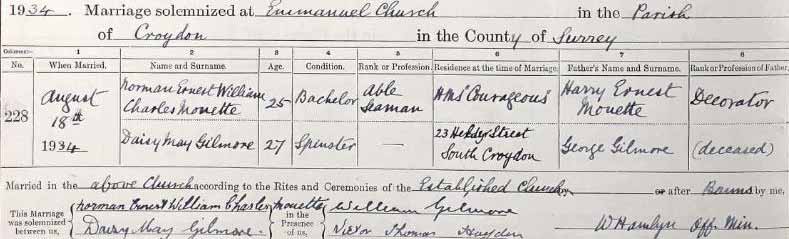 1934. Marriage solemnized at Emmanuel Church in the Parish
of Croydon in the County of Surrey
Columns:— 1 2 3 4 5 6 7 8
No. When Married. Name and Surname. Age. Condition. Rank or Profession. Residence at the time of Marriage. Father's Name and Surname. Rank or Profession of Father.
228 August 18th 1934
Norman Ernest William Charles Mouette 25 Bachelor Able Seaman HMS 'Courageous' Harry Ernest Mouette Decorator
Daisy May Gilmore 27 Spinster — 23 Street South Croydon George Gilmore (deceased)
Married in the above Church according to the Rites and Ceremonies of the Established Church, or after Banns by me,
This Marriage was solemnized between us, Norman Ernest William Charles Mouette in the Presence of us, William Gilmore
Daisy May Gilmore. Victor Thomas Haydon W Hamlyn Off. Min.